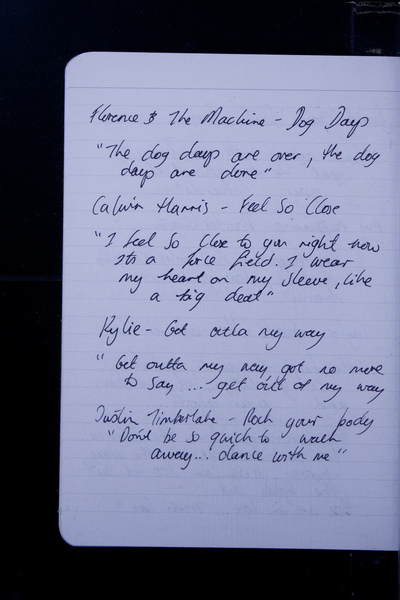 Florence & The Machine - Dog Days
"The dog days are over, the dog
days are done"
Calvin Harris - Feel So Close
"I feel So Close to you right now
Its a force field. I wear
my heart on my sleeve, like
a big deal"
Kylie - Get outta my way
"Get outta my way got no more
to say ... get out of my way
Justin Timberlake - Rock your body
"Dont be so quick to walk
away... dance with me"